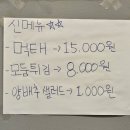 신메뉴☆☆
- 먹태 → 15.000원
모듬튀김 → 8.000원
양배추 샐러드 → 1.000원